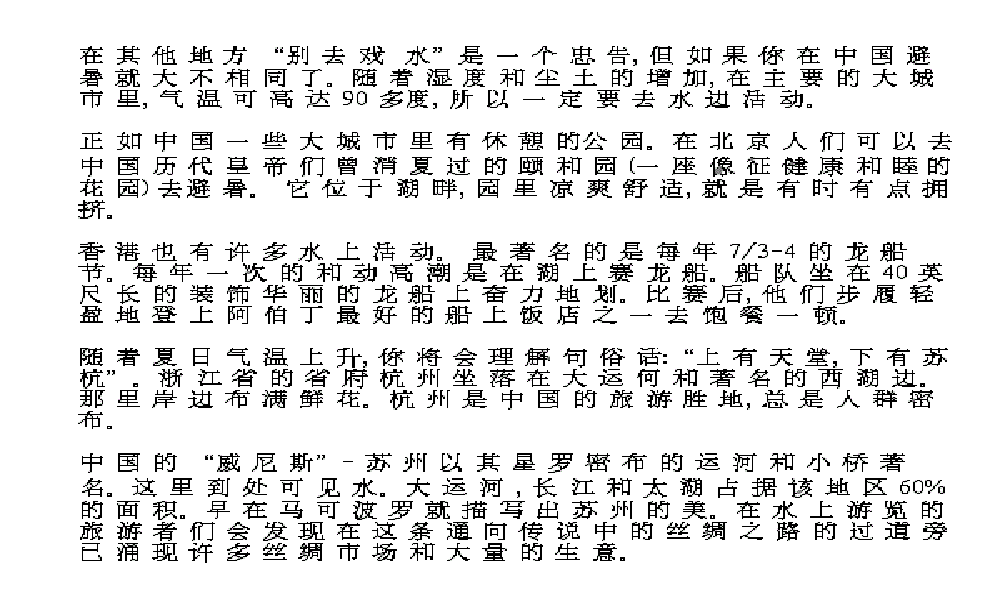 在其他地方“别去戏水”是一个忠告,但如果你在中国避
暑就大不相同了。随着湿度和尘土的增加,在主要的大城
市里,气温可高达90多度,所以一定要去水边活动。
正如中国一些大城市里有休憩的公园。在北京人们可以去
中国历代皇帝们曾消夏过的颐和园(一座像征健康和睦的
花园)去避暑。它位于湖畔,园里凉爽舒适,就是有时有点拥
挤。
香港也有许多水上活动。最著名的是每年7/3-4的龙船
节。每年一次的和动高潮是在湖上赛龙船。船队坐在40英
尺长的装饰华丽的龙船上奋力地划。比赛后,他们步履轻
盈地登上阿伯丁最好的船上饭店之一去饱餐一顿。
随着夏日气温上升,你将会理解句俗话:“上有天堂,下有苏
杭”。浙江省的省府杭州坐落在大运何和著名的西湖边。
那里岸边布满鲜花。杭州是中国的旅游胜地,总是人群密
布。
中国的“威尼斯”-苏州以其星罗密布的运河和小桥著
名。这里到处可见水。大运河,长江和太湖占据该地区60%
的面积。早在马可波罗就描写出苏州的美。在水上游览的
旅游者们会发现在这条通向传说中的丝绸之路的过道旁
已涌现许多丝绸市场和大量的生意。